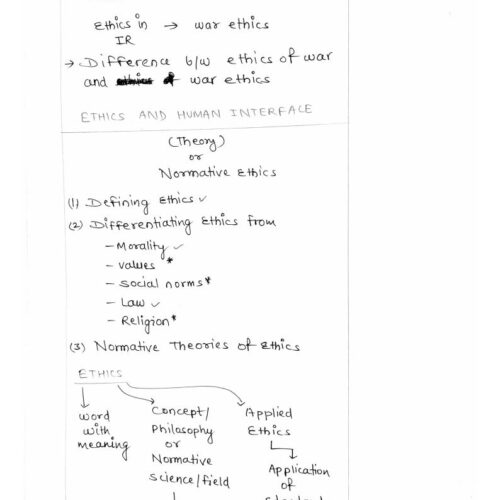 Ethics in → war ethics
IR
→ Difference b/w ethics of war
and war ethics
ETHICS AND HUMAN INTERFACE
(Theory)
or
Normative Ethics
(1) Defining Ethics ✓
(2) Differentiating Ethics from
- Morality ✓
- values *
- Social norms *
- Law ✓
- Religion *
(3) Normative Theories of Ethics
ETHICS
word
with
meaning
Concept/
Philosophy
or
Normative
Science/field
Applied
Ethics
Application
of